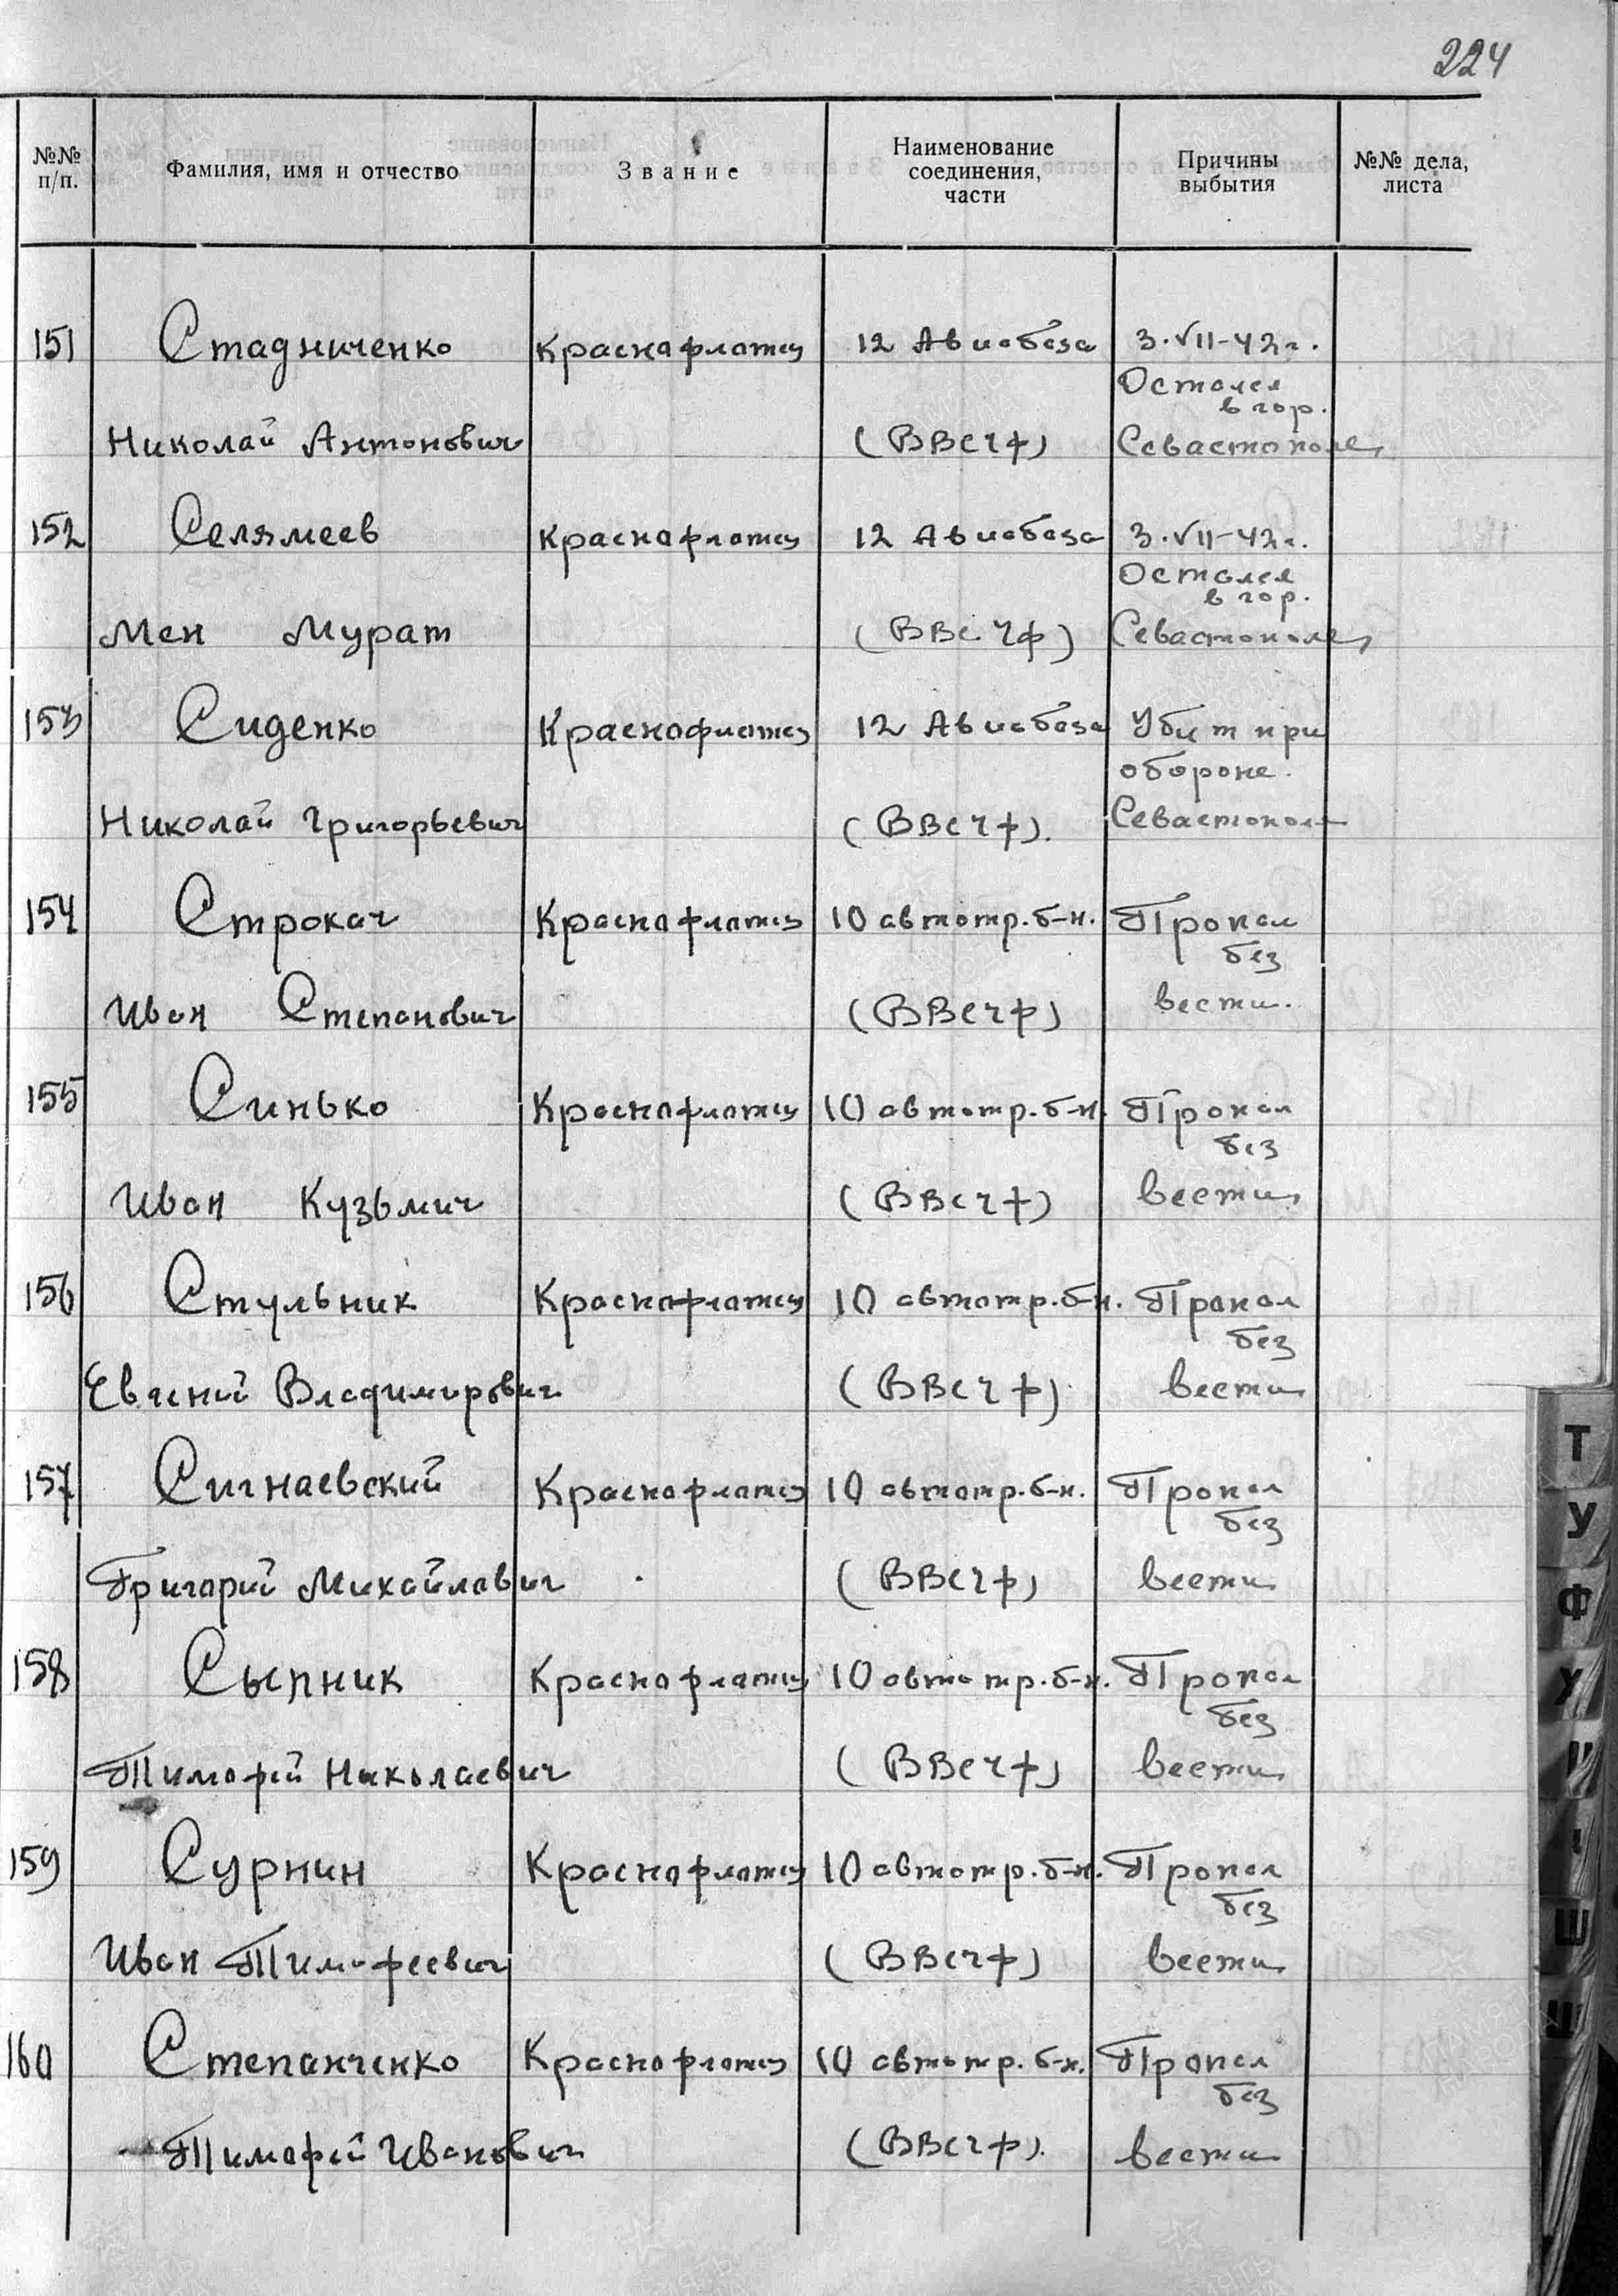 224
№№ п/п. Фамилия, имя и отчество Звание Наименование соединения, части Причины выбытия №№ дела, листа
151 Стадниченко Краснофлотец 12 Авиабаза 3.VII-42г.
Остался
в гор.
Николай Антонович (ВВС ЧФ) Севастополе
152 Селямеев Краснофлотец 12 Авиабаза 3.VII-42г.
Остался
в гор.
Мен Мурат (ВВС ЧФ) Севастополе
153 Сиденко Краснофлотец 12 Авиабаза Убит при
обороне
Николай Григорьевич (ВВС ЧФ). Севастополя
154 Строкач Краснофлотец 10 автотр. б-н. Пропал
без
Иван Степанович (ВВС ЧФ) вести.
155 Синько Краснофлотец 10 автотр. б-н. Пропал
без
Иван Кузьмич (ВВС ЧФ) вести
156 Стульник Краснофлотец 10 автотр. б-н. Пропал
без
Евгений Владимирович (ВВС ЧФ) вести
157 Сигнаевский Краснофлотец 10 автотр. б-н. Пропал
без
Григорий Михайлович (ВВС ЧФ) вести
158 Сыпник Краснофлотец 10 автотр. б-н. Пропал
без
Тимофей Николаевич (ВВС ЧФ) вести
159 Сурнин Краснофлотец 10 автотр. б-н. Пропал
без
Иван Тимофеевич (ВВС ЧФ) вести
160 Степанченко Краснофлотец 10 автотр. б-н. Пропал
без
Тимофей Иванович (ВВС ЧФ). вести
Т
У
Ф
Х
Ш